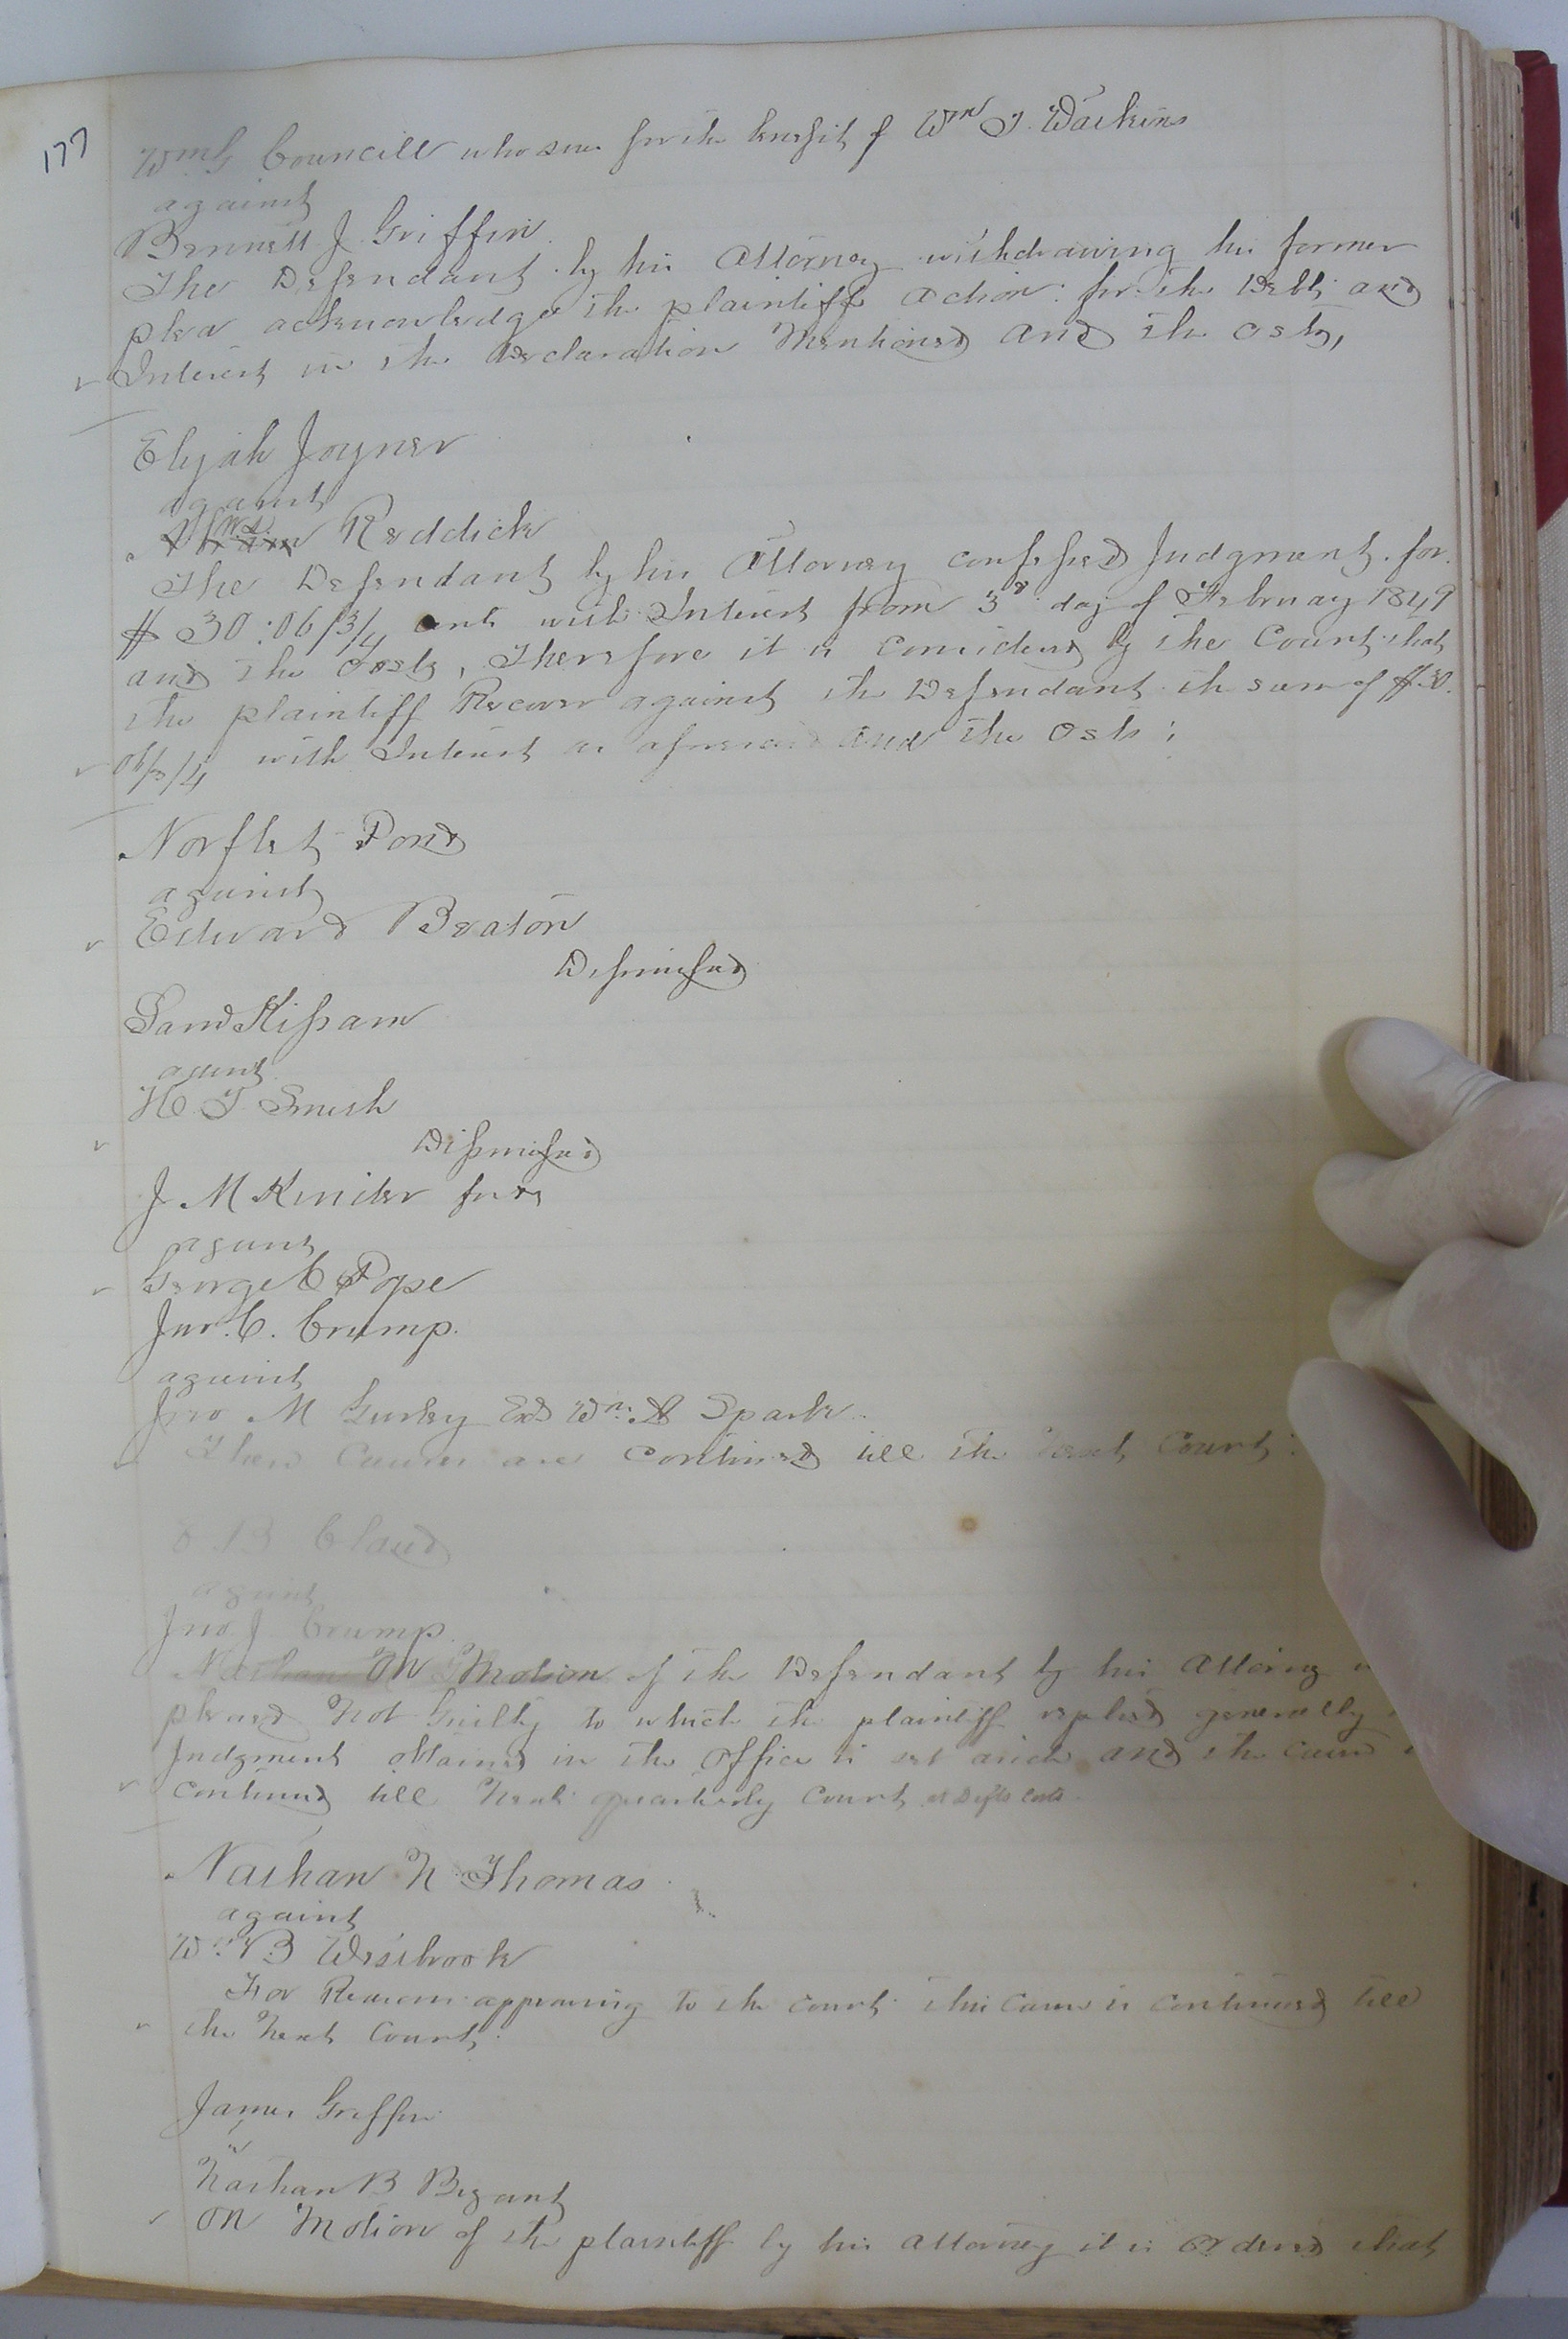 177
Wm G Councill who sues for the benefit of Wm J. Watkins
against
Bennett J Griffin
The Defendant by his Attorney withdrawing his former
plea acknowledges the plaintiffs action for the Debt and
Interest in the Declaration Mentioned and the Costs,
Elijah Joyner
against
Reddick
The Defendant by his Attorney confessed Judgment for
$30:06/3/4 cents with Interest from 3d day of February 1849
and the Costs, Therefore it is Considered by the Court that
the plaintiff Recover against the Defendant the sum of $30.
06/3/4 with Interest as aforesaid and the Costs;
Norflet Pond
against
Edward Beaton
Dismissed
Saml Kissam
against
H T Smith
Dismissed
J M Kinder for &c
against
George C Pope
Jno. C. Crump.
against
Jno M Gurley Exd Wm Spark
These Causes are continued till the Next Court:
E B Claud
against
Jno J Crump
On Motion of the Defendant by his Attorney
pleaed Not Guilty to which the plaintiff replied generally
Judgment obtained in the Office is set aside and the cause
continued till Next quarterly Court at Defts Costs
Nathan N Thomas
against
Wm B Westbrook
For Reasons appearing to the court this Cause is continued till
the Next Court.
James Griffin
vs
Nathan B Bryant
On Motion of the plaintiff by his attorney it is Ordered that